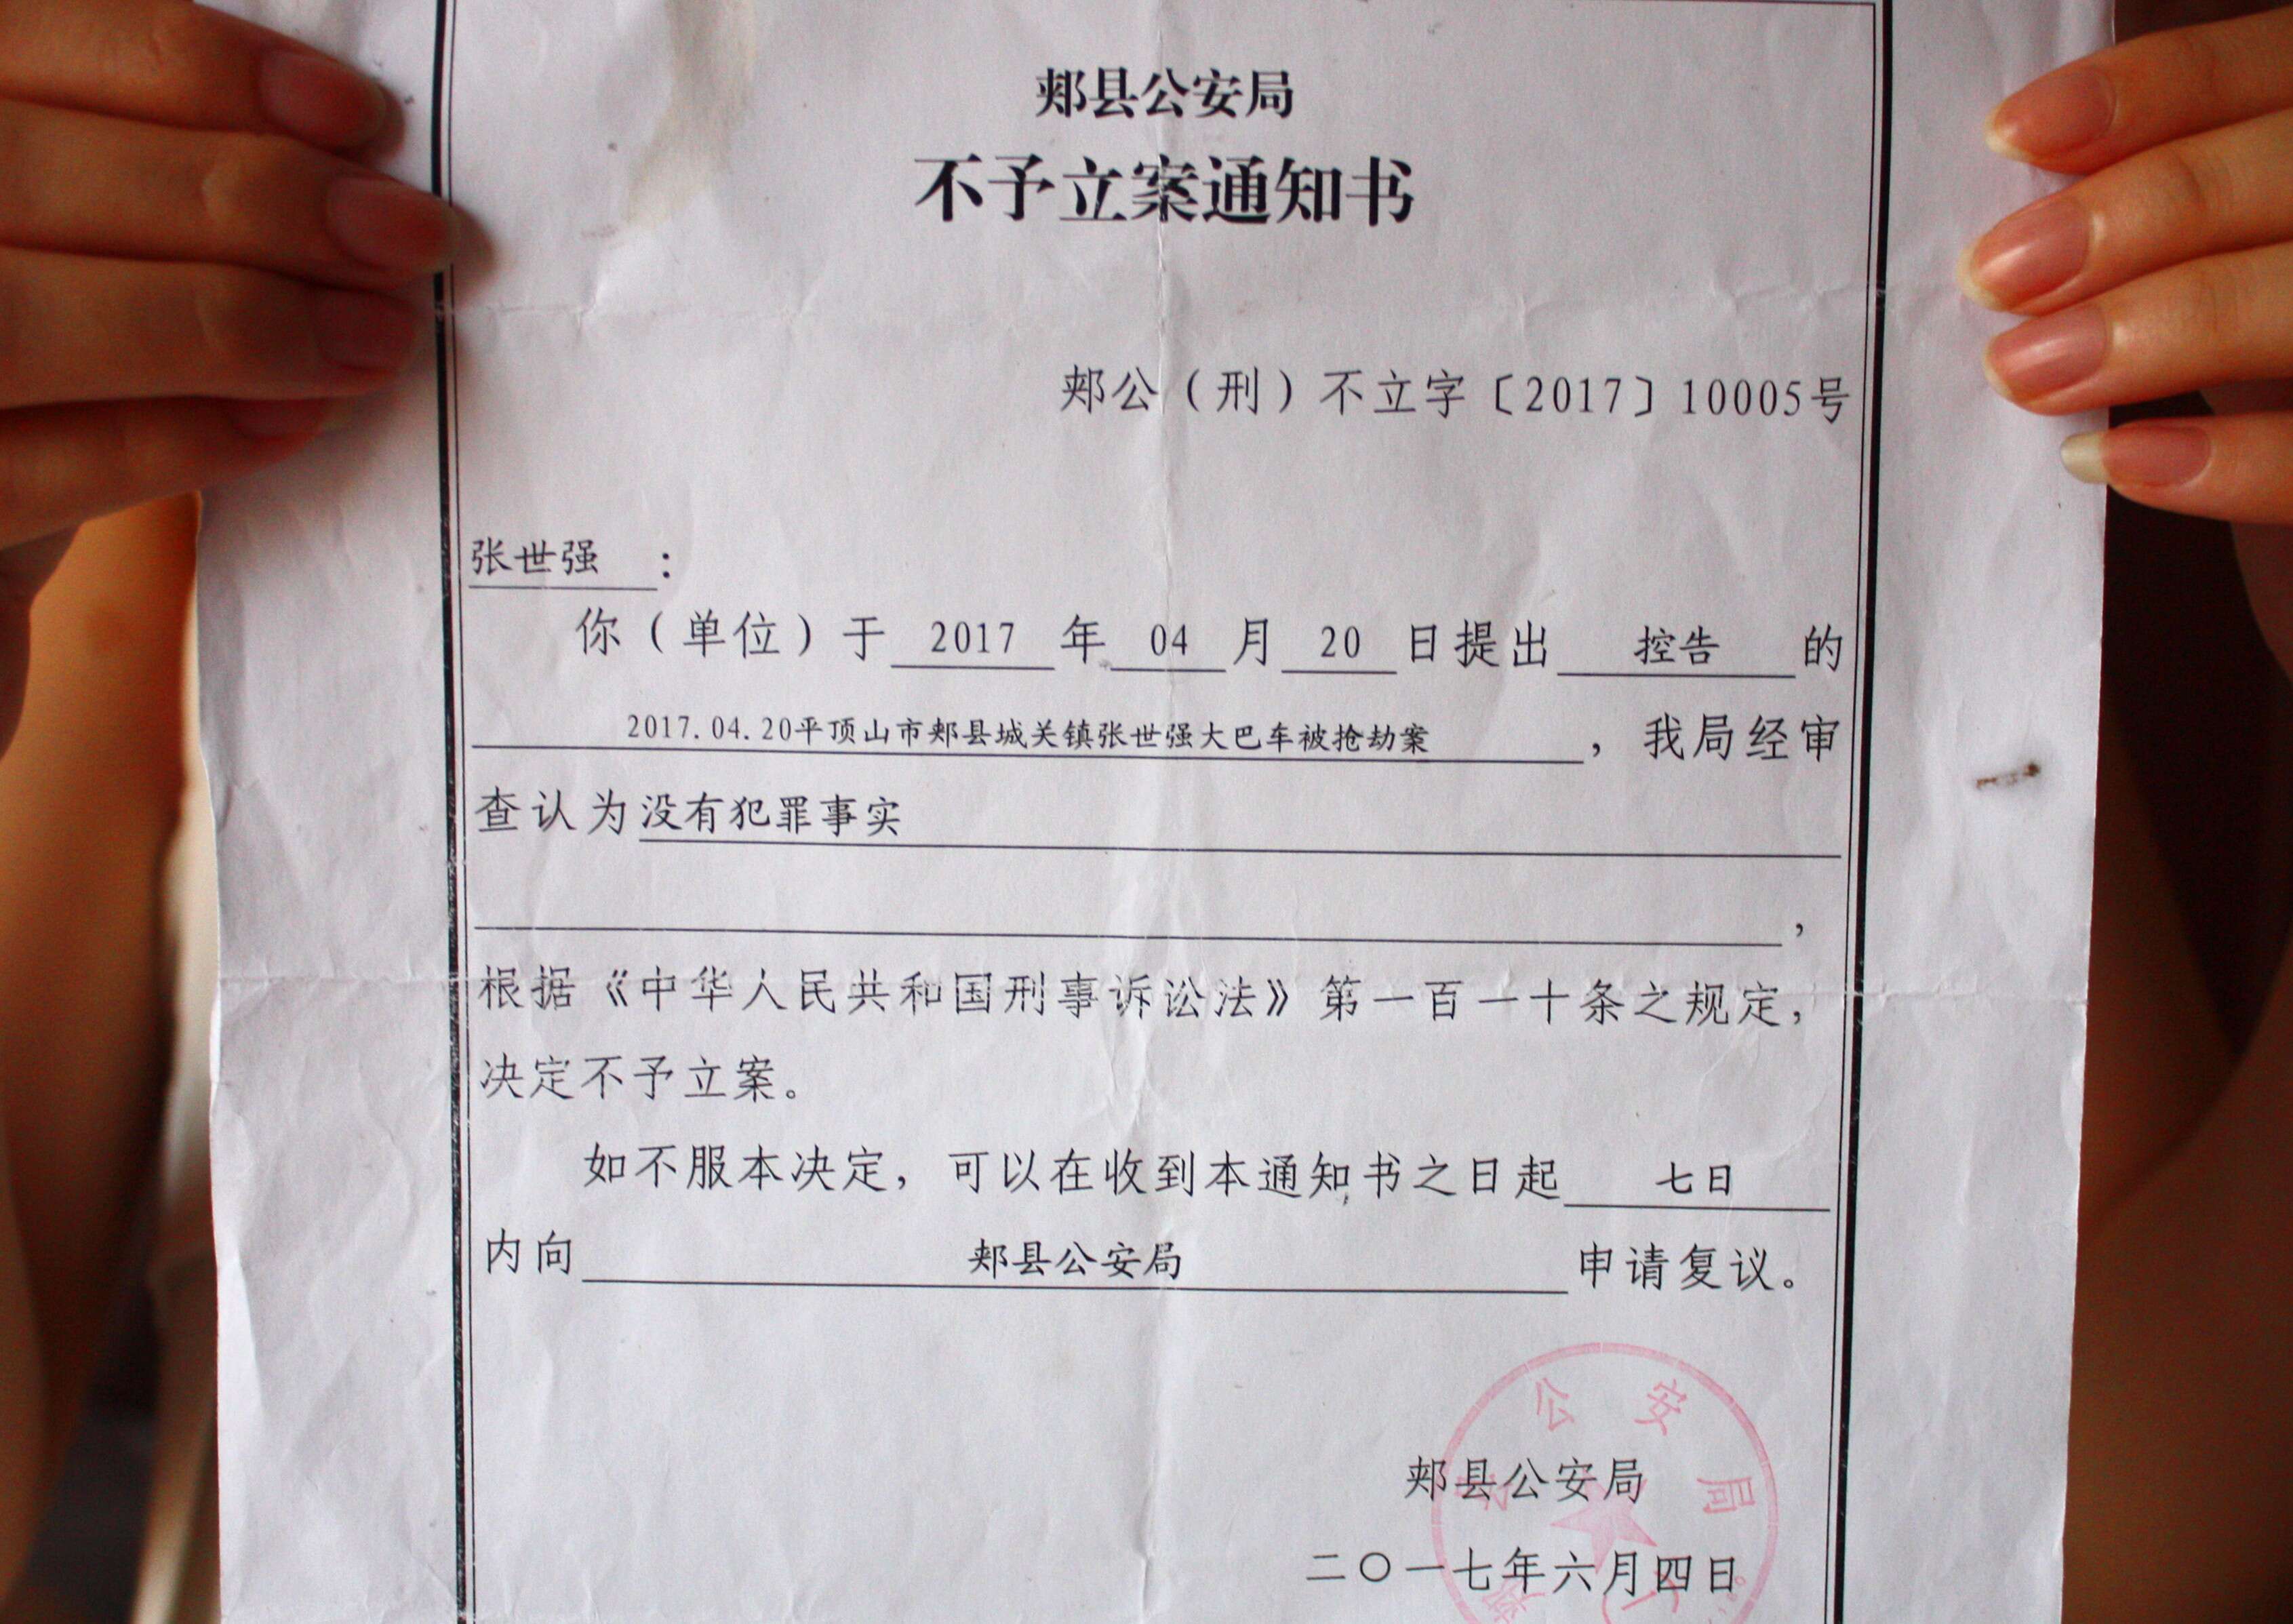 郏县公安局
不予立案通知书
郏公（刑）不立字〔2017〕10005号
张世强：
你（单位）于 2017 年 04 月 20 日提出 控告 的
2017.04.20平顶山市郏县城关镇张世强大巴车被抢劫案，我局经审
查认为没有犯罪事实
，
根据《中华人民共和国刑事诉讼法》第一百一十条之规定，
决定不予立案。
如不服本决定，可以在收到本通知书之日起 七日
内向 郏县公安局 申请复议。
公安局
郏县公安局
二〇一七年六月四日